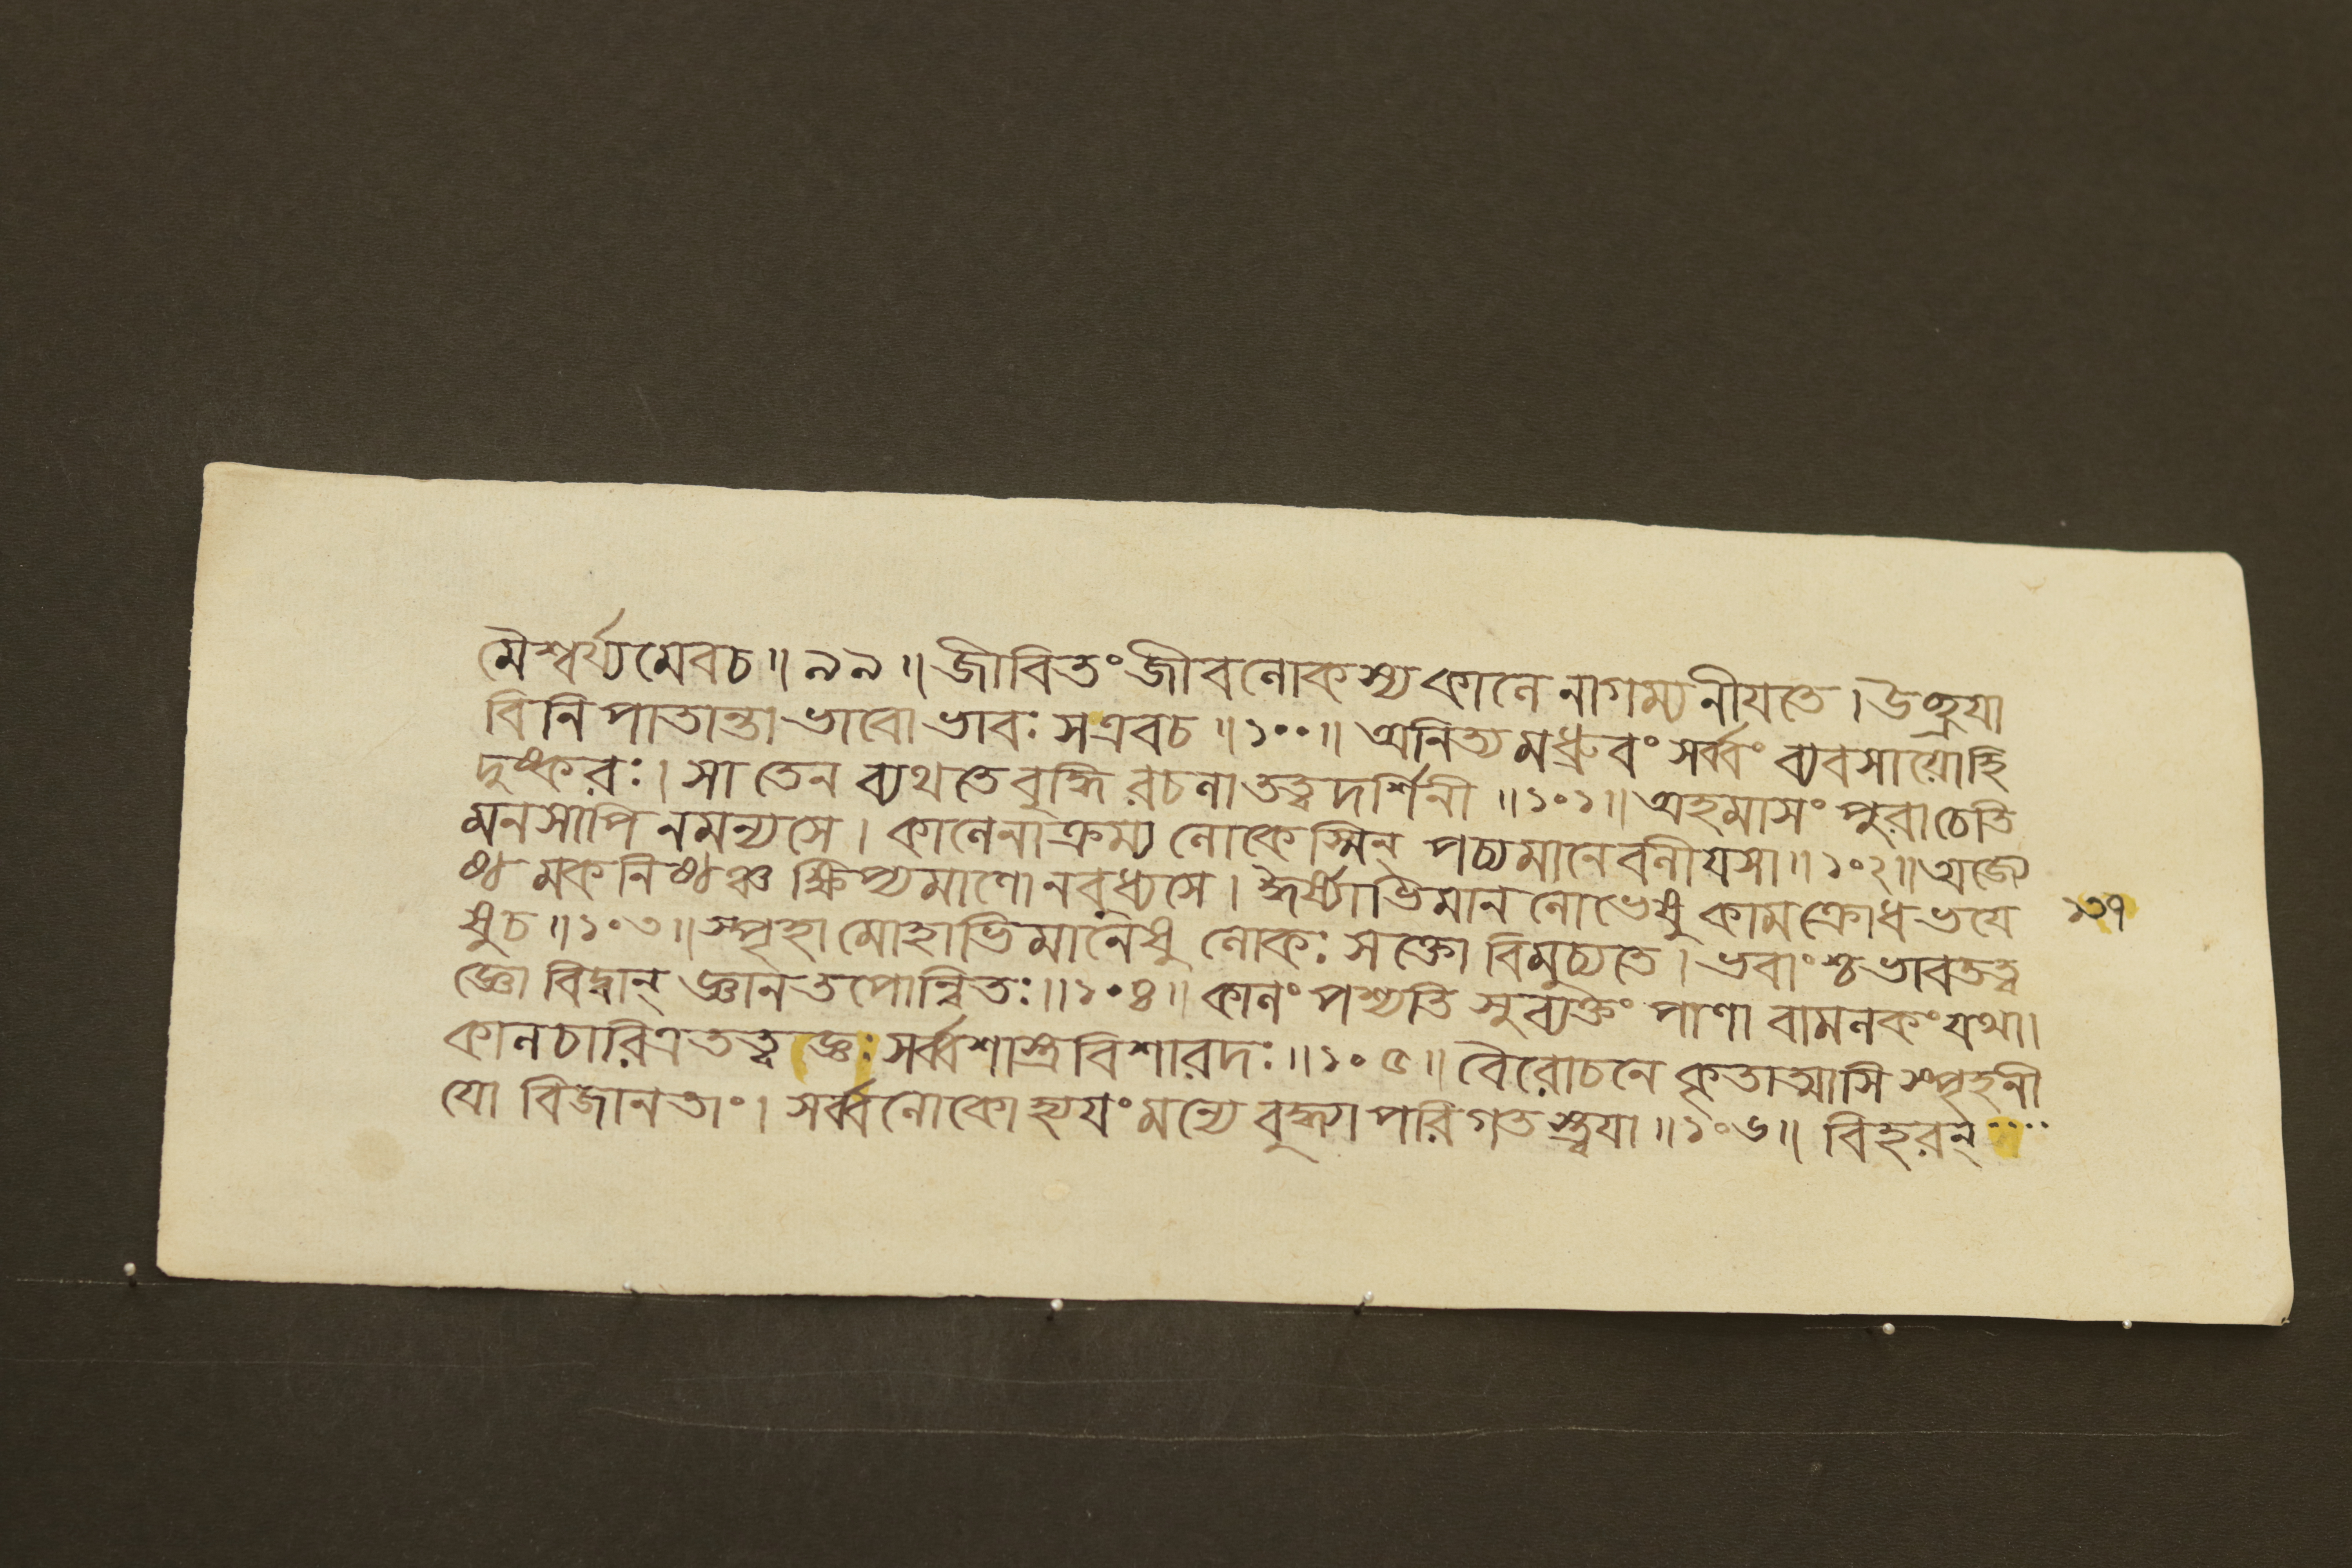 মৈশ্বর্য্যমেবচ॥৯৯॥জীবিতংজীবলোকস্যকালেনাগম্যনীযতে।উচ্ছ্রযা
বিনিপাতান্তাভাবোভাবঃসএবচ॥১০০॥অনিত্যমধ্রুবংসর্ব্বংব্যবসায়োহি
দুষ্করঃ।সাতেনব্যথতেবুদ্ধিরচলাতত্ত্বদর্শিনী॥১০১॥অহমাসংপুরাচেতি
মনসাপিনমন্যসে।কালেনাক্রম্যলোকেস্মিন্পচ্যমানেবলীযসা॥১০২॥অজ্যে
ষ্ঠমকনিষ্ঠঞ্চক্ষিপ্যমাণোনবুধ্যসে।ঈর্ষ্যাভিমানলোভেষুকামক্রোধভযে ১৩৭
ষুচ॥১০৩॥স্পৃহামোহাভিমানেষুলোকঃসক্তোবিমুচ্যতে।ভবাংশ্চভাবতত্ত্ব
জ্ঞোবিদ্বান্জ্ঞানতপোন্বিতঃ॥১০৪॥কালংপশ্যতিসুব্যক্তংপাণাবামলকংযথা।
কালচারিত্রতত্ত্বজ্ঞঃসর্ব্বশাস্ত্রবিশারদঃ॥১০৫॥বৈরোচনেকৃতাত্মাসিস্পৃহনী
যোবিজানতাং।সর্ব্বলোকোহ্যযংমন্যেবুদ্ধ্যাপরিগতস্ত্বযা॥১০৬॥বিহরন্